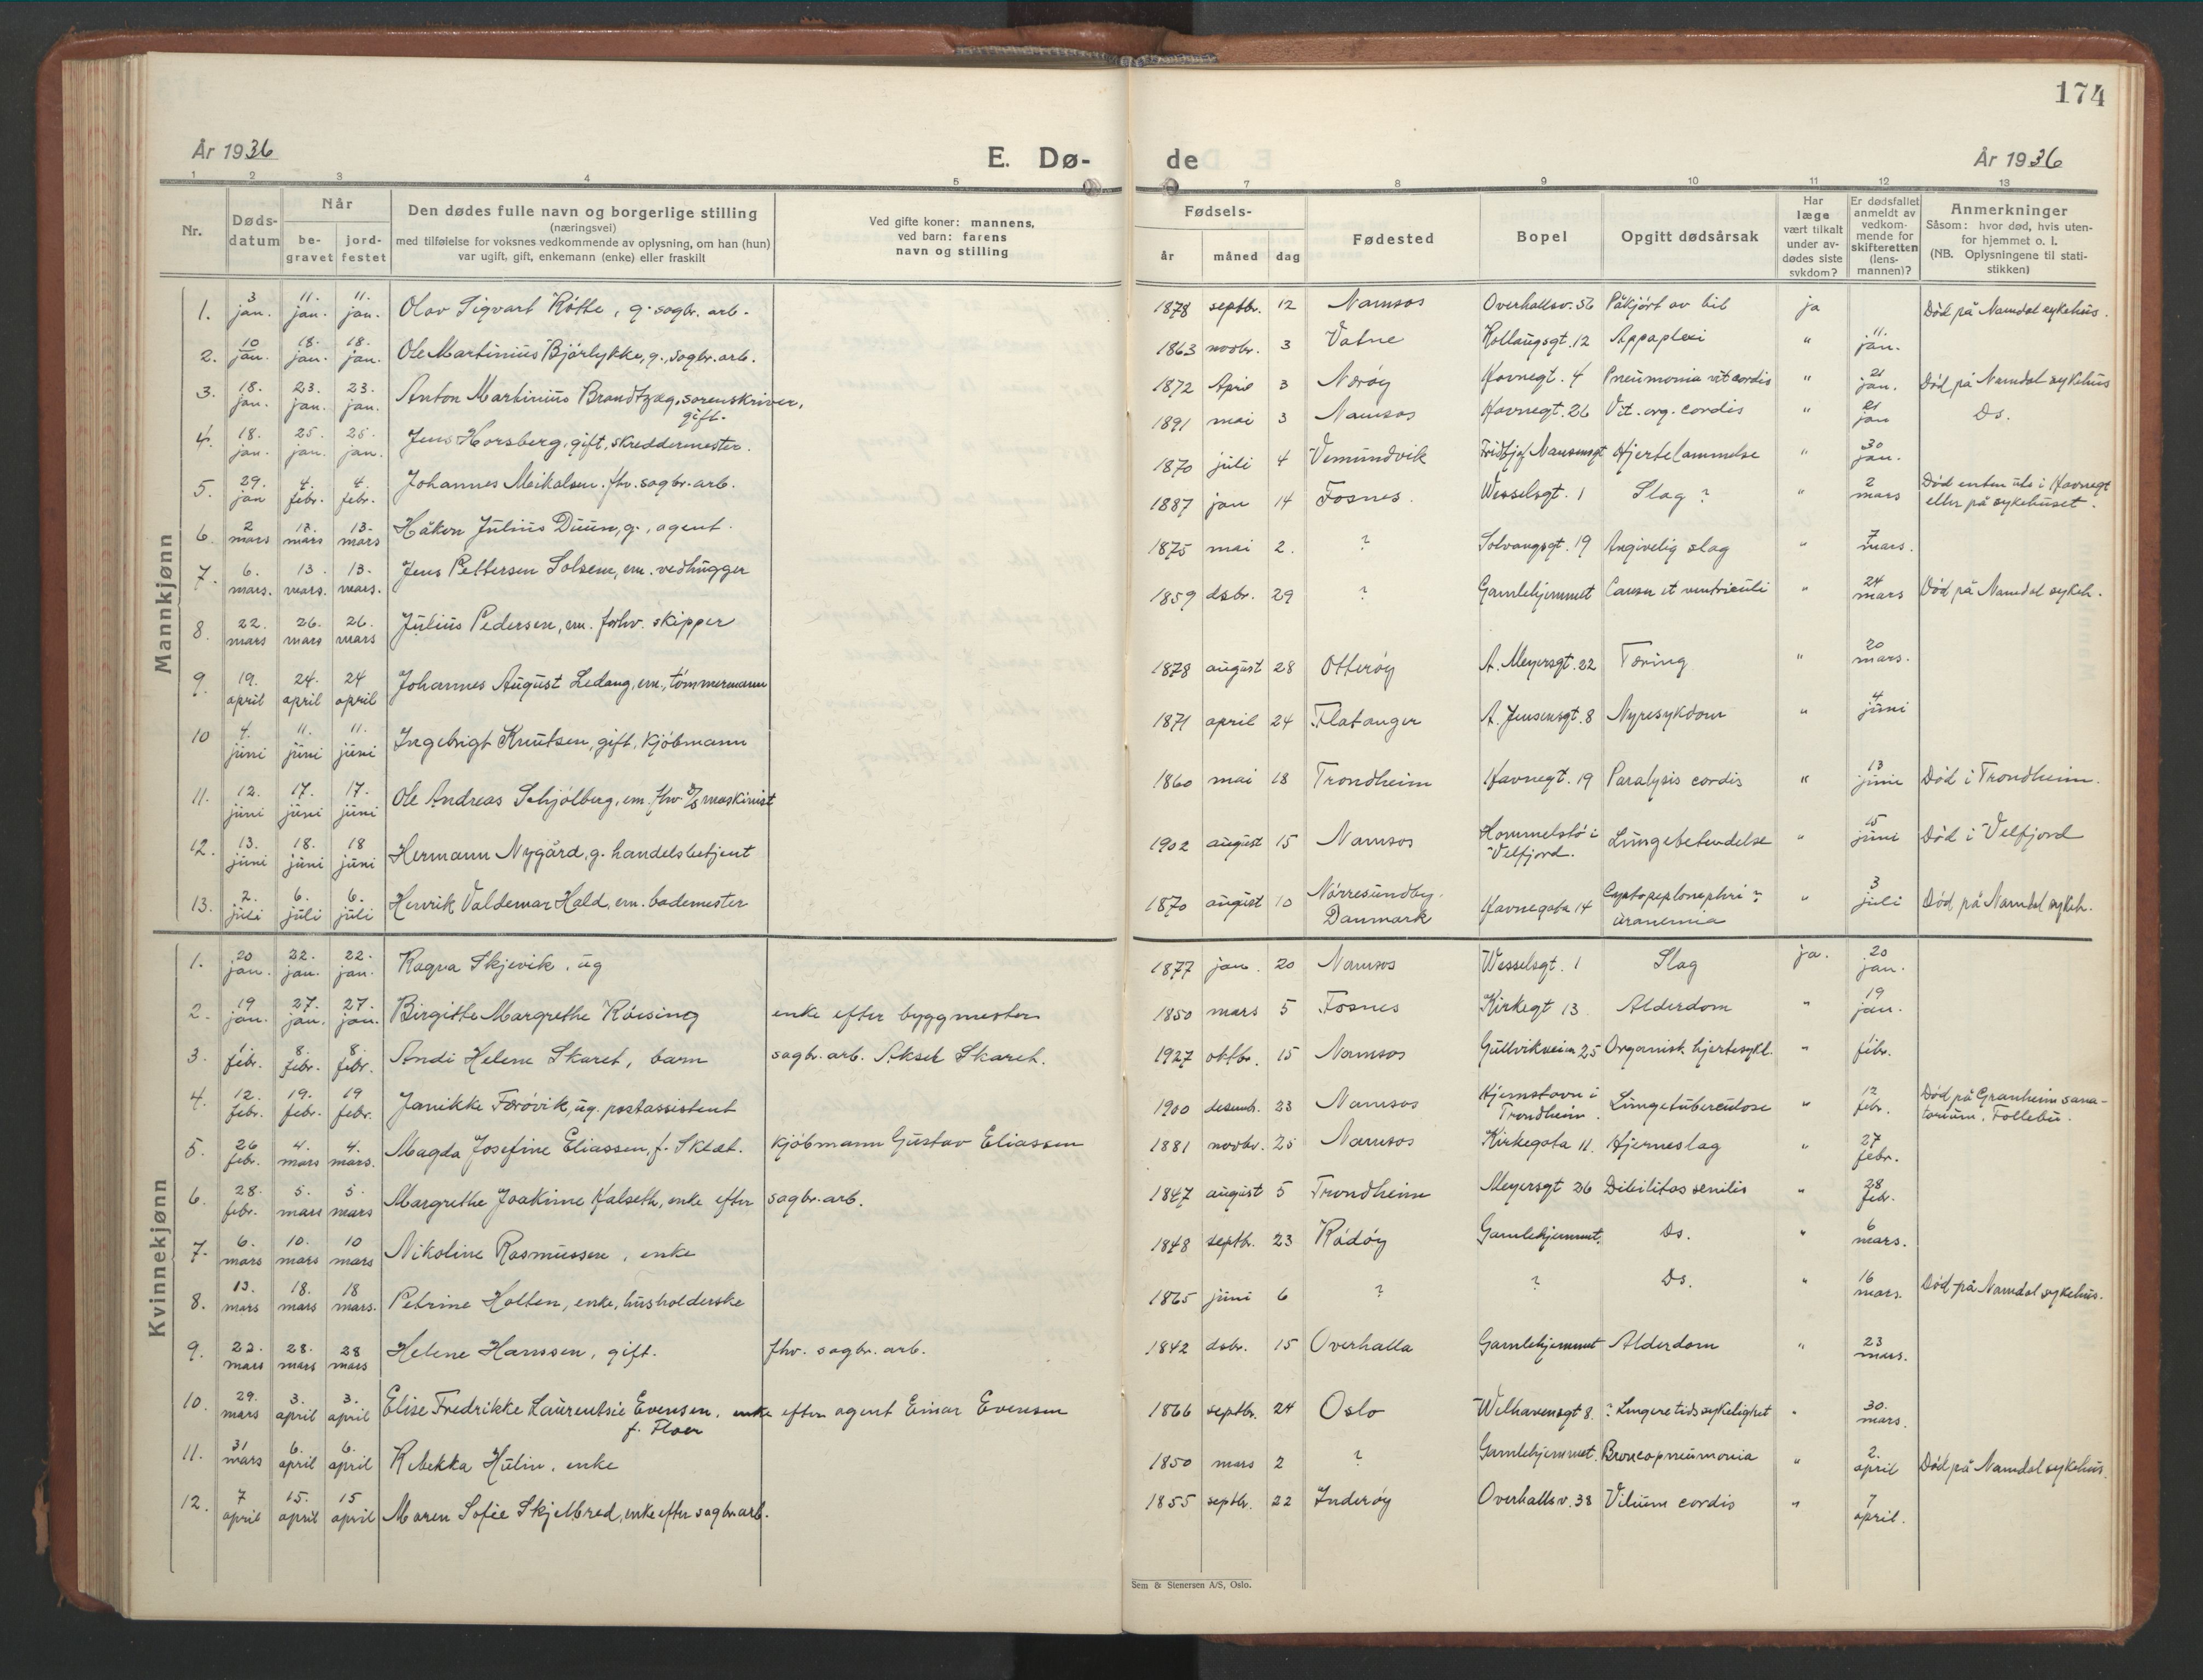 174
År 1936
E. Dø-
de
År 1936
1 2 3 4 5 7 8 9 10 11 12 13
Nr.
Døds-
datum
Når
be-
gravet
jord-
festet
Den dødes fulle navn og borgerlige stilling
(næringsvei)
med tilføielse for voksnes vedkommende av oplysning, om han (hun)
var ugift, gift, enkemann (enke) eller fraskilt
Ved gifte koner: mannens,
ved barn: farens
navn og stilling
Fødsels-
år måned dag
Fødested
Bopel
Opgitt dødsårsak
Har
læge
vært tilkalt
under av-
dødes siste
sykdom?
Er dødsfallet
anmeldt av
vedkom-
mende for
skifteretten
(lens-
mannen)?
Anmerkninger
Såsom: hvor død, hvis uten-
for hjemmet o. l.
(NB. Oplysningene til stati-
stikken)
Mannkjønn
1. 3 jan. 11. jan. 11. jan. Olav Sigvart Røthe, g. sagbr. arb. 1878 septbr. 12 Namsos Overhallsv. 56 Påkjørt av bil ja Død på Namdal sykehus.
2. 10 jan. 18. jan. 18. jan. Ole Martinius Bjørlykke, g., sagbr. arb. 1863 novbr. 3 Vatne Kollaugsgt. 12 Appaplexi " 11. jan.
3. 18. jan. 23. jan. 23. jan. Anton Martinius Brandtzæg, sorenskriver, gift. 1872 April 3 Nærøy Havnegt. 4 Pneumonia vit cordis " 21 jan. Død på Namdal sykehus
4. 18. jan. 25. jan. 25. jan. Jens Horsberg, gift, skreddermester. 1891 mai 3 Namsos Havnegt. 26 Vit. org. cordis " 21 jan Ds.
5. 29. jan 4. febr. 4. febr. Johannes Meikalsen. fhv. sagbr. arb. 1870 juli 4 Vemundvik Fridtjof Nansensgt Hjertelammelse " 30 jan.
6. 2 mars 13. mars 13. mars Håkon Julius Duun, g., agent. 1887 jan 14 Fosnes. Wesselsgt. 1 Slag ? " 2 mars Død enten ute i Havnegt eller på sykehuset.
7. 6. mars. 13. mars. 13. mars. Jens Pettersen Solsem, em. vedhugger 1875 mai 2. ? Solvangsgt. 19 Angivelig slag " 7 mars.
8. 22. mars 26. mars 26. mars Julius Pedersen, em. forhv. skipper 1859 dsbr. 29 ? Gamlehjemmet Cancer et ventriculi " 24 mars Død på Namdal sykeh.
9. 19. april 24. april 24 april Johannes August Ledang, em., tømmermann 1878 august 28 Otterøy A. Meyersgt. 22 Tæring " 20 mars.
10 4. juni 11. juni 11. juni Ingebrigt Knutsen, gift, kjøbmann 1871 april 24 Flatanger A. Jensensgt. 8 Nyresykdom " 4 juni
11. 12. juni 17. juni 17. juni Ole Andreas Schjølberg, em. fhv D/S maskinist 1860 mai 18 Trondheim Havnegt. 19 Paralysis cordis " 13 juni Død i Trondheim.
12. 13. juni 18. juni 18 juni Hermann Nygård, g. handelsbetjent 1902 august 15 Namsos Hommelstø i Velfjord. Lungebetendelse " 15 juni Død i Velfjord
13. 2. juli 6. juli 6. juli Henrik Valdemar Hald, em. bademester 1870 august 10 Nørresundby. Danmark Havnegata 14 " 3 juli Død på Namdal sykeh.
Kvinnekjønn
1. 20 jan. 22. jan. 22. jan. Ragna Skjevik, ug 1877 jan. 20 Namsos Wesselsgt. 1 Slag ja. 20 jan.
2. 19 jan. 27. jan. 27. jan. Birgithe Margrethe Röising enke efter byggmester 1850 mars 5 Fosnes Kirkegt 13 Alderdom " 19 jan.
3. 1. febr. 8. febr. 8. febr. Andi Helene Skaret, barn sagbr. arb. Aksel Skaret. 1927 oktbr. 15 Namsos Gullvikveien 25 Organisk hjertesykd. " febr.
4. 12. febr. 19. febr. 19 febr. Janikke Færøvik, ug. postassistent 1900 desemb. 23 Namsos Hjemstavn i Trondheim. Lungetuberculose " 12 febr. Død på Granheim sana-torium, Follebu.
5. 26 febr. 4. mars 4. mars. Magda Josefine Eliassen, f. Sklet. kjøbmann Gustav Eliassen 1881 novbr. 25 Namsos Kirkegata 11. Hjerneslag " 27 febr.
6. 28. febr. 5. mars 5. mars Margrethe Joakime Halseth, enke efter sagbr. arb. 1847 august 5 Trondheim Meyersgt 26 Dibilitas senilis " 28 febr.
7. 6. mars 10. mars 10 mars Nikoline Rasmussen, enke 1848 septbr. 23 Rödöy Gamlehjemmet. Ds. " 6 mars.
8. 13. mars 18. mars 18 mars. Petrine Holten, enke, husholderske 1865 juni 6 ? ? Ds. " 16 mars. Død på Namdal sykehus.
9. 22. mars 28. mars 28 mars Helene Hanssen, gift. fhv. sagbr. arb. 1842 dsbr. 15 Overhalla Gamlehjemmet Alderdom " 23 mars.
10. 29. mars 3. april 3. april Elise Fredrikke Laurentsie Evensen, f. Floer enke efter agent Einar Evensen 1866 septbr. 24 Oslo Welhavensgt 8. ? Lengere tids sykelighet " 30. mars.
11. 31 mars 6. april 6. april Rebekka Hulin, enke 1850 mars 2 ? Gamlehjemmet. Broncopneumonia " 2. april Død på Namdal sykehus.
12. 7 april 15. april 15 april Maren Sofie Skjelbred, enke efter sagbr. arb. 1855 septbr. 22 Inderøy Overhallsv. 38 Vitium cordis " 7 april.
Sem & Stenersen A/S, Oslo.